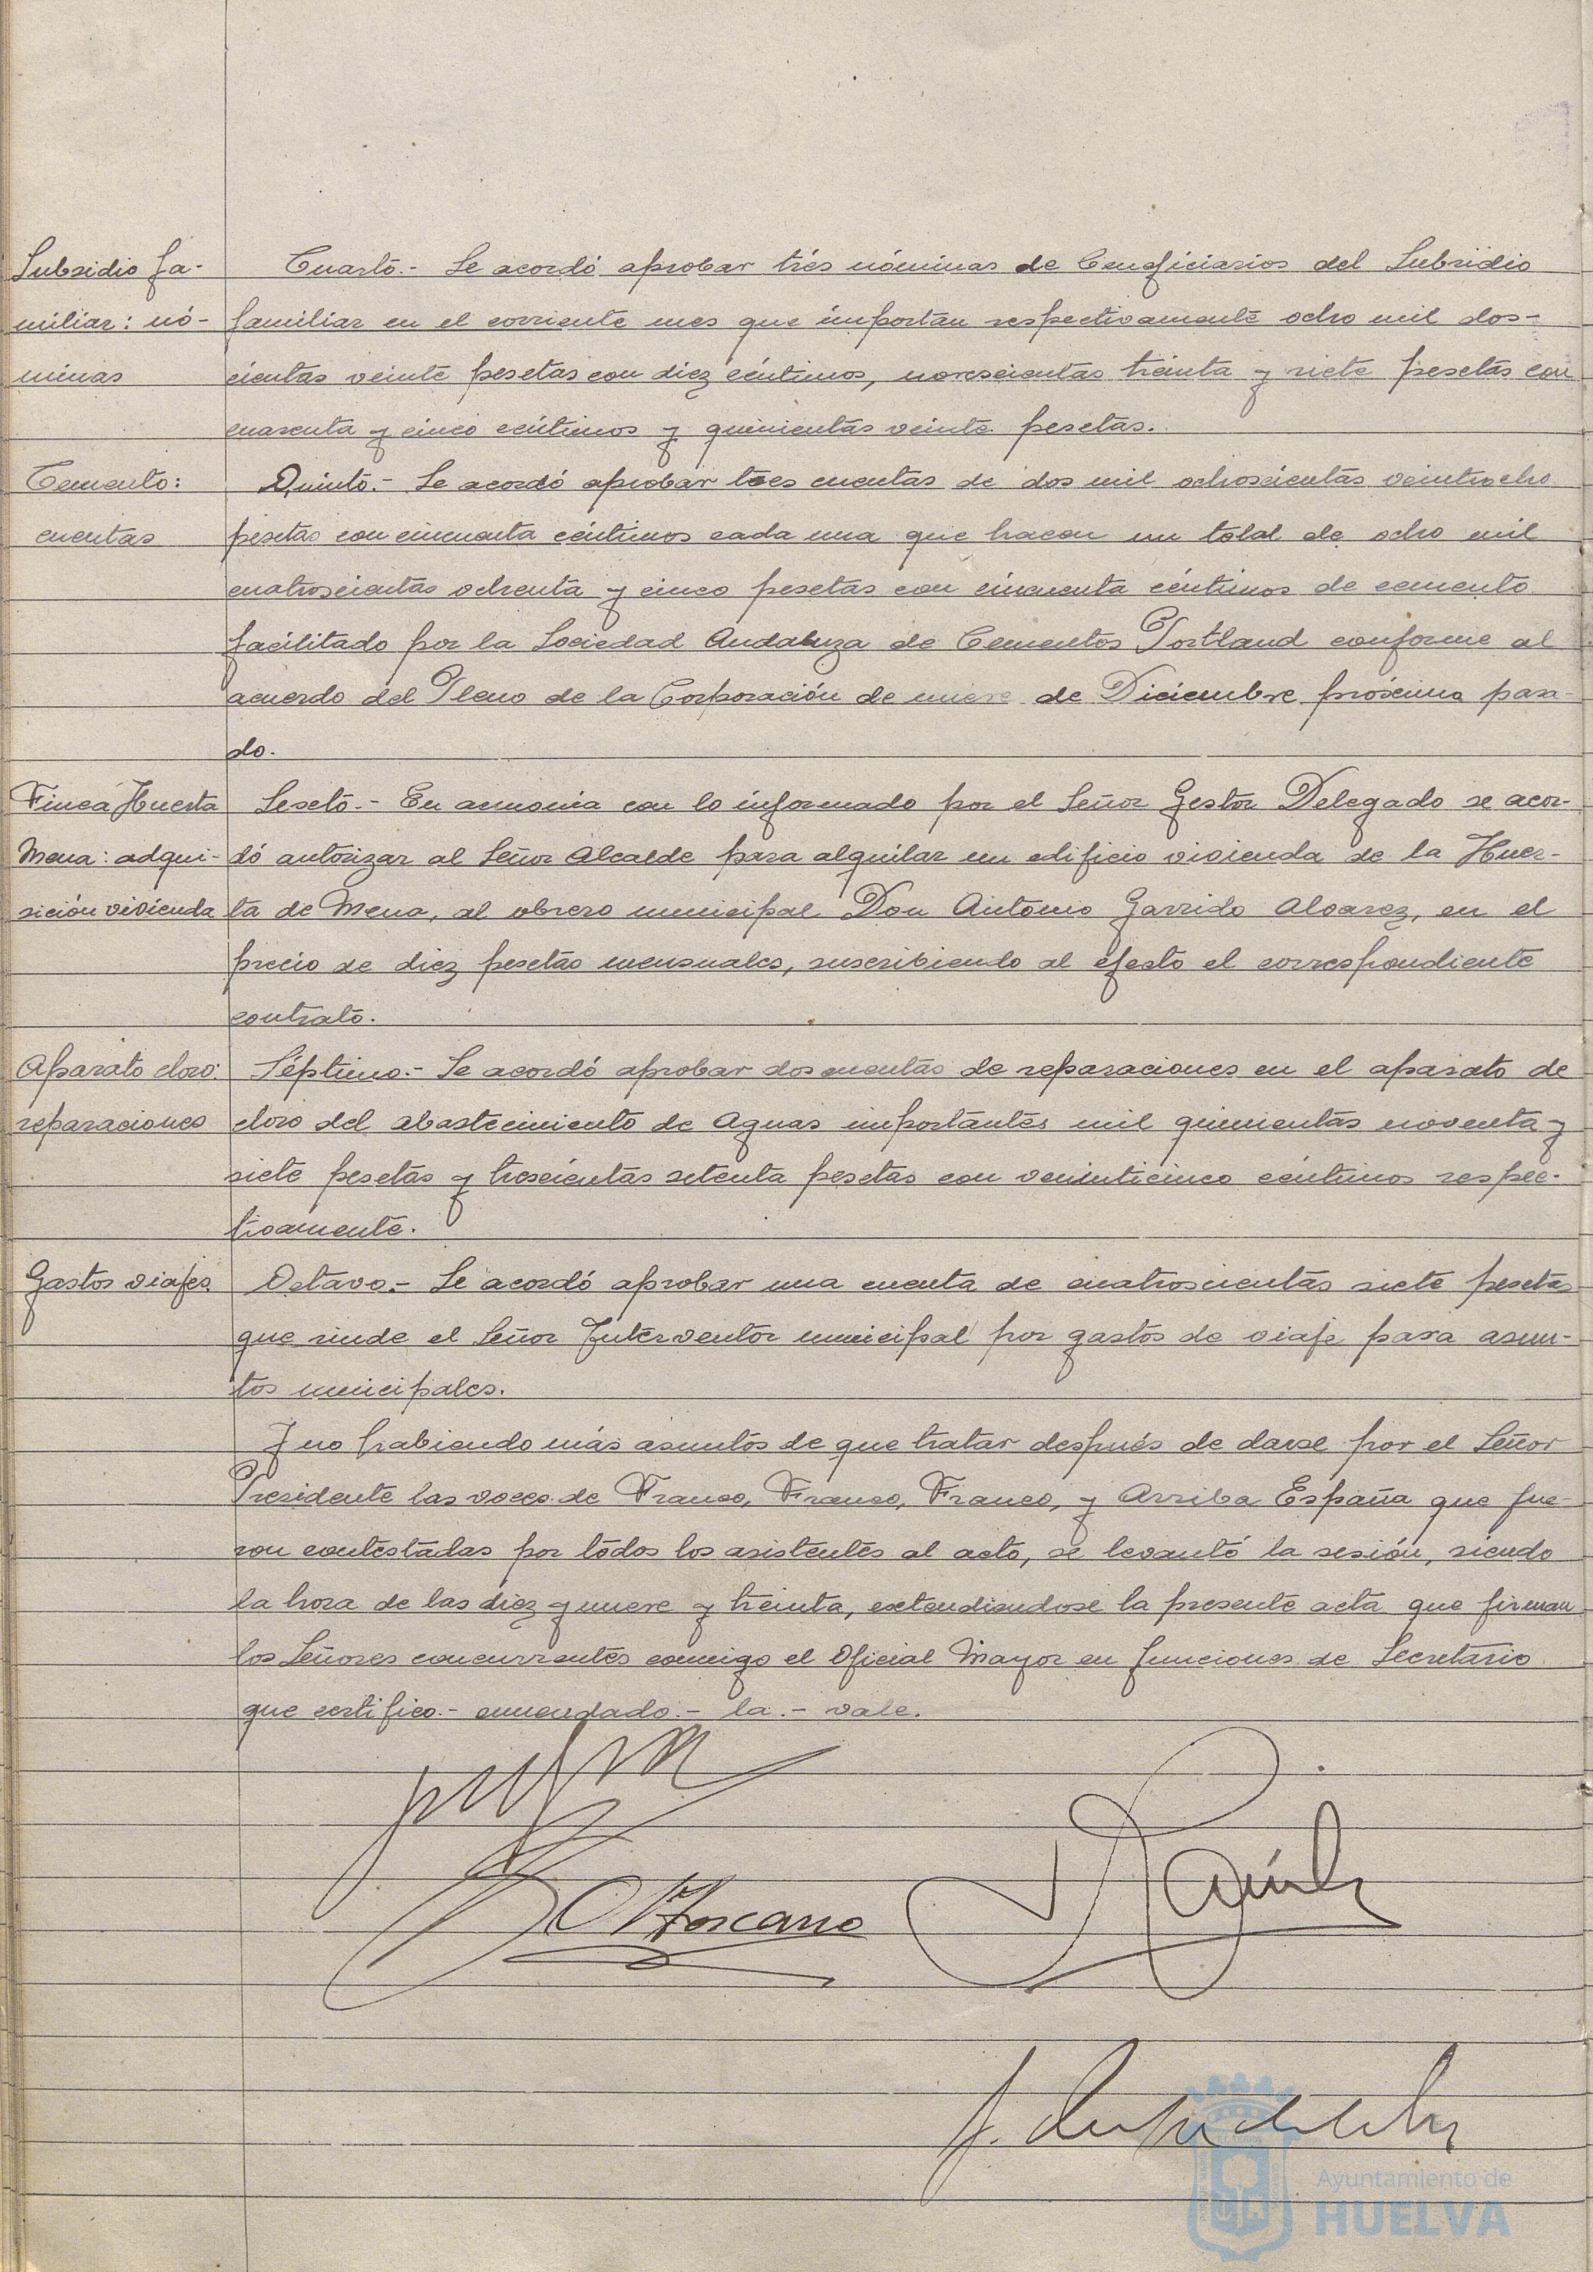 Subsidio fa-
miliar: nó-
minas
Cuarto.- Se acordó aprobar trés nóminas de beneficiarios del Subsidio
familiar en el corriente mes que importan respectivamente ocho mil dos-
cientas veinte pesetas con diez céntimos, novescientas treinta y siete pesetas con
cuarenta y cinco céntimos y quinientas veinte pesetas.
Cemento:
cuentas
Quinto.- Se acordó aprobar tres cuentas de dos mil ochoscientas veintiocho
pesetas con cincuenta céntimos cada una que hacen un total de ocho mil
cuatroscientas ochenta y cinco pesetas con cincuenta céntimos de cemento
facilitado por la Sociedad Andaluza de Cementos Portland conforme al
acuerdo del Pleno de la Corporación de nueve de Diciembre próximo pasa-
do.
Finca Huerta
Mena: adqui-
sición vivienda
Sexto.- En armonia con lo informado por el Señor Gestor Delegado se acor-
dó autorizar al Señor Alcalde para alquilar un edificio vivienda de la Huer-
ta de Mena, al obrero municipal Don Antonio Garrido Alvarez, en el
precio de diez pesetas mensuales, suscribiendo al efecto el correspondiente
contrato.
Aparato cloro:
reparaciones
Séptimo.- Se acordó aprobar dos cuentas de reparaciones en el aparato de
cloro del abastecimiento de Aguas importantes mil quinientas noventa y
siete pesetas y trescientas setenta pesetas con veninticinco céntimos respec-
tivamente.
Gastos viajes.
Octavo.- Se acordó aprobar una cuenta de cuatroscientas siete pesetas
que rinde el Señor Interventor municipal por gastos de viaje para asun-
tos municipales.
Y no habiendo más asuntos de que tratar después de darse por el Señor
Presidente las voces de Franco, Franco, Franco, y Arriba España que fue-
ron contestadas por todos los asistentes al acto, se levantó la sesión, siendo
la hora de las diez y nueve y treinta, extendiendose la presente acta que firman
los Señores concurrentes conmigo el Oficial Mayor en funciones de Secretario
que certifico.- enmendado.- la.- vale.
Toscano
Ayuntamiento de
HUELVA